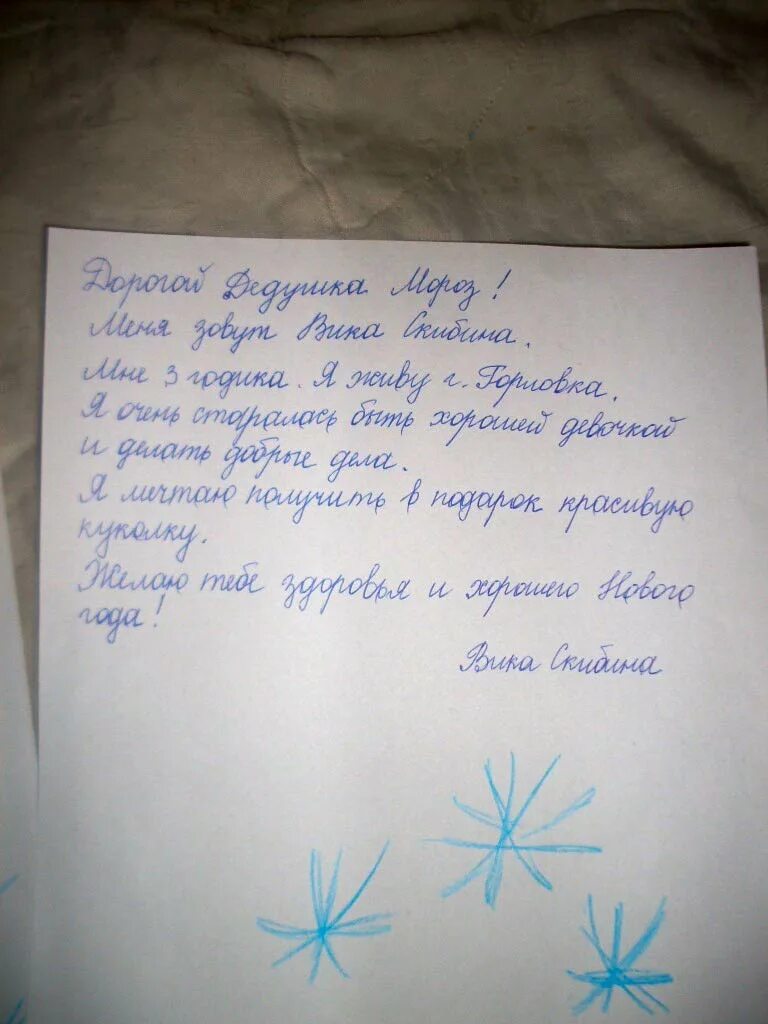 Дорогой Дедушка Мороз!
Меня зовут Вика Скибина.
Мне 3 годика. Я живу г. Горловка.
Я очень старалась быть хорошей девочкой
и делать добрые дела.
Я мечтаю получить в подарок красивую
куколку.
Желаю тебе здоровья и хорошего Нового
года!
Вика Скибина